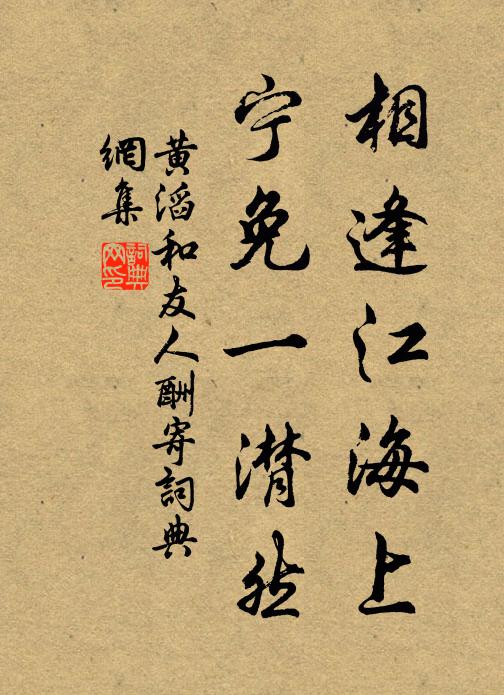 相逢江海上
宁免一潸然
黄滔和友人酬寄詞典
網集
詞典
网印